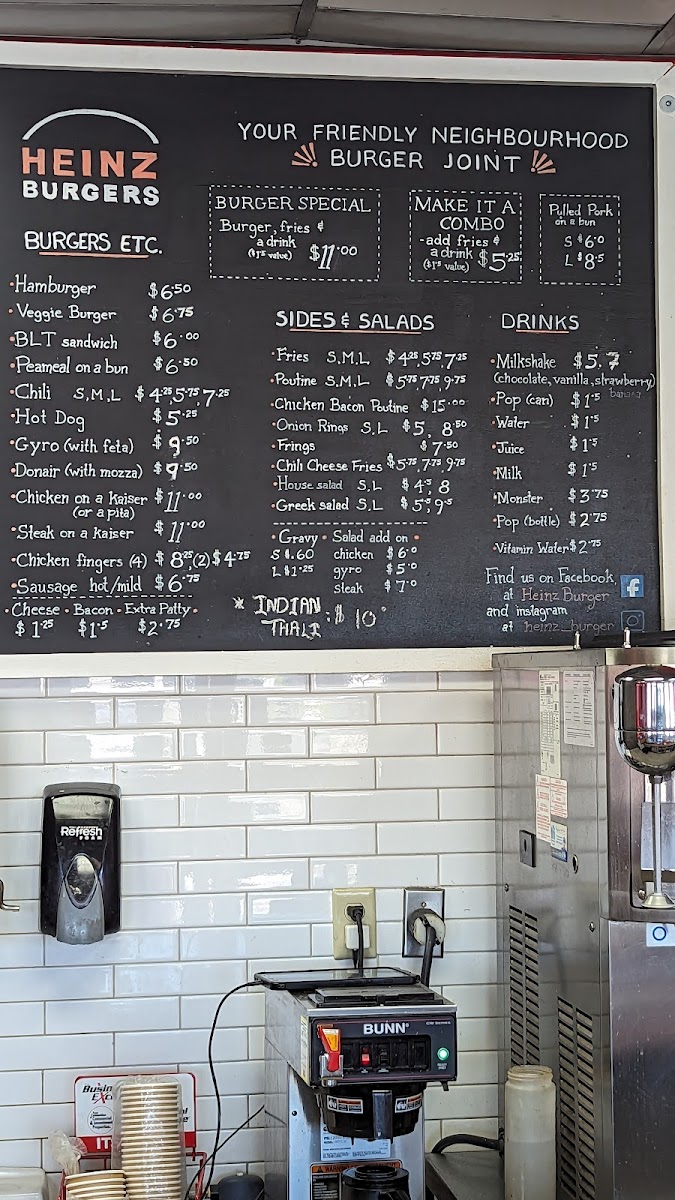 HEINZ
BURGERS
YOUR FRIENDLY NEIGHBOURHOOD
BURGER JOINT
BURGER SPECIAL
Burger, fries &
a drink
($1.5 value) $11.00
MAKE IT A
COMBO
-add fries &
a drink
($1.5 value) $5.25
Pulled Pork
on a bun
S $6.0
L $8.5
BURGERS ETC.
•Hamburger $6.50
•Veggie Burger $6.75
•BLT sandwich $6.00
•Peameal on a bun $6.50
•Chili S,M,L $4.25, 5.75, 7.25
•Hot Dog $5.25
•Gyro (with feta) $9.50
•Donair (with mozza) $9.50
•Chicken on a kaiser $11.00
(or a pita)
•Steak on a kaiser $11.00
•Chicken fingers (4) $8.25, (2) $4.75
•Sausage hot/mild $6.75
•Cheese •Bacon •Extra Patty•
$1.25 $1.5 $2.75
SIDES & SALADS
•Fries S,M,L $4.25, 5.75, 7.25
•Poutine S,M,L $5.75, 7.75, 9.75
•Chicken Bacon Poutine $15.00
•Onion Rings S,L $5, 8.50
•Frings $7.50
•Chili Cheese Fries $5.75, 7.75, 9.75
•House salad S,L $4.5, 8
•Greek salad S,L $5.5, 9.5
•Gravy• Salad add on •
S $1.60 chicken $6.0
L $1.25 gyro $5.0
steak $7.0
* INDIAN
THALI :$10
DRINKS
•Milkshake $5.7
(chocolate, vanilla, strawberry)
banana
•Pop (can) $1.5
•Water $1.5
•Juice $1.5
•Milk $1.5
•Monster $3.75
•Pop (bottle) $2.75
•Vitamin Water $2.75
Find us on Facebook
at Heinz Burger
and instagram
at heinz_burger
Refresh
FOAM
BUNN